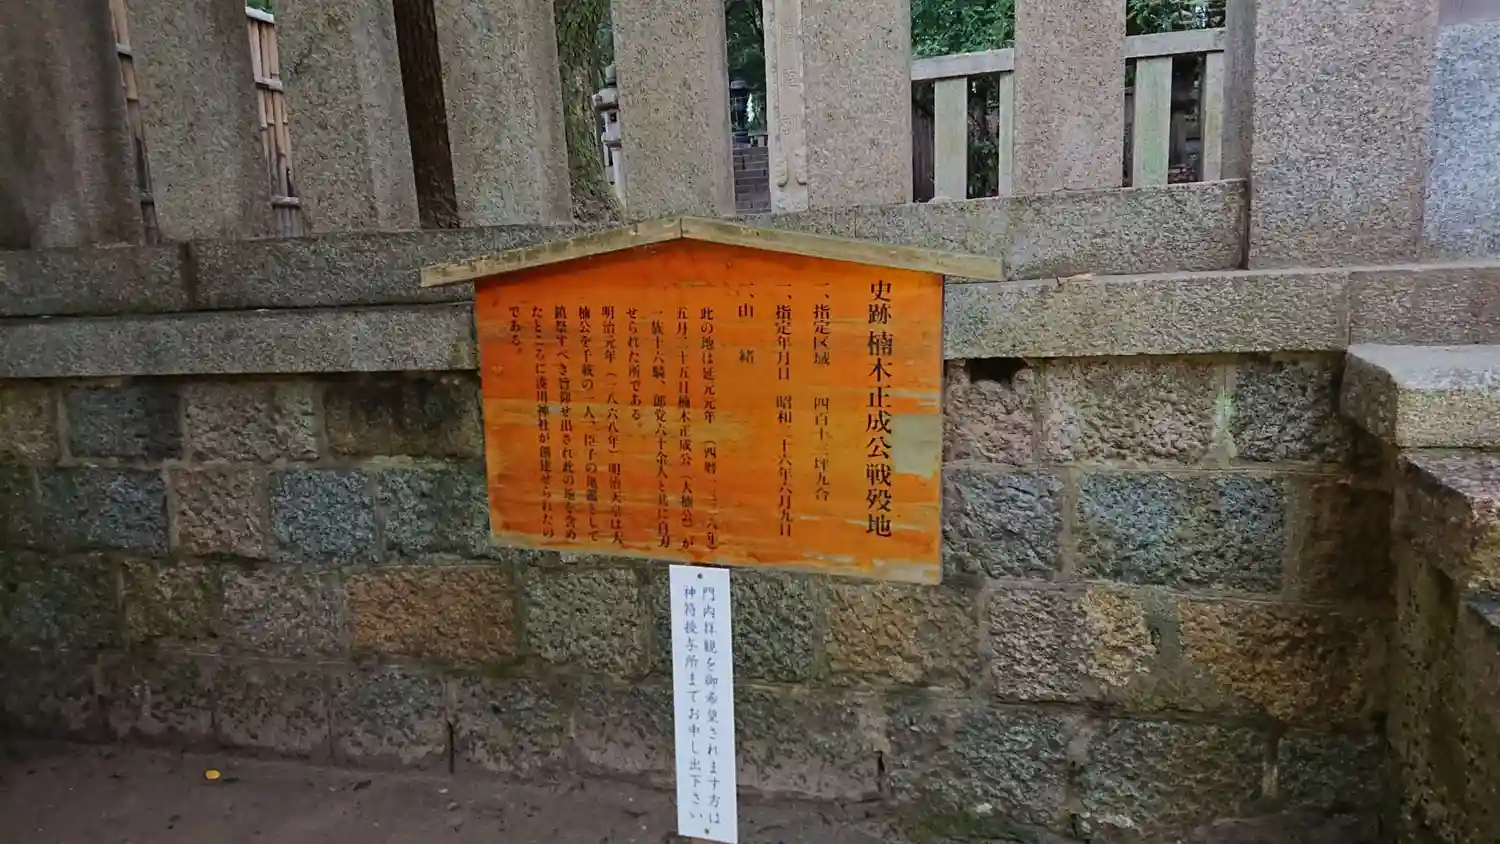 史跡 楠木正成公戦殁地
一、指定区域 四百十二坪九合
一、指定年月日 昭和二十六年六月九日
一、由緒
此の地は延元元年(西暦一三三六年)
五月二十五日楠木正成公(大楠公)が
一族十六騎、郎党六十余人と共に自刃
せられた所である。
明治元年(一八六八年)明治天皇は大
楠公を千載の一人、臣子の亀鑑として
鎮祭すべき旨仰せ出され此の地を含め
たところに湊川神社が創建せられたの
である。
門内拝観を御希望されます方は
神符授与所までお申し出下さい